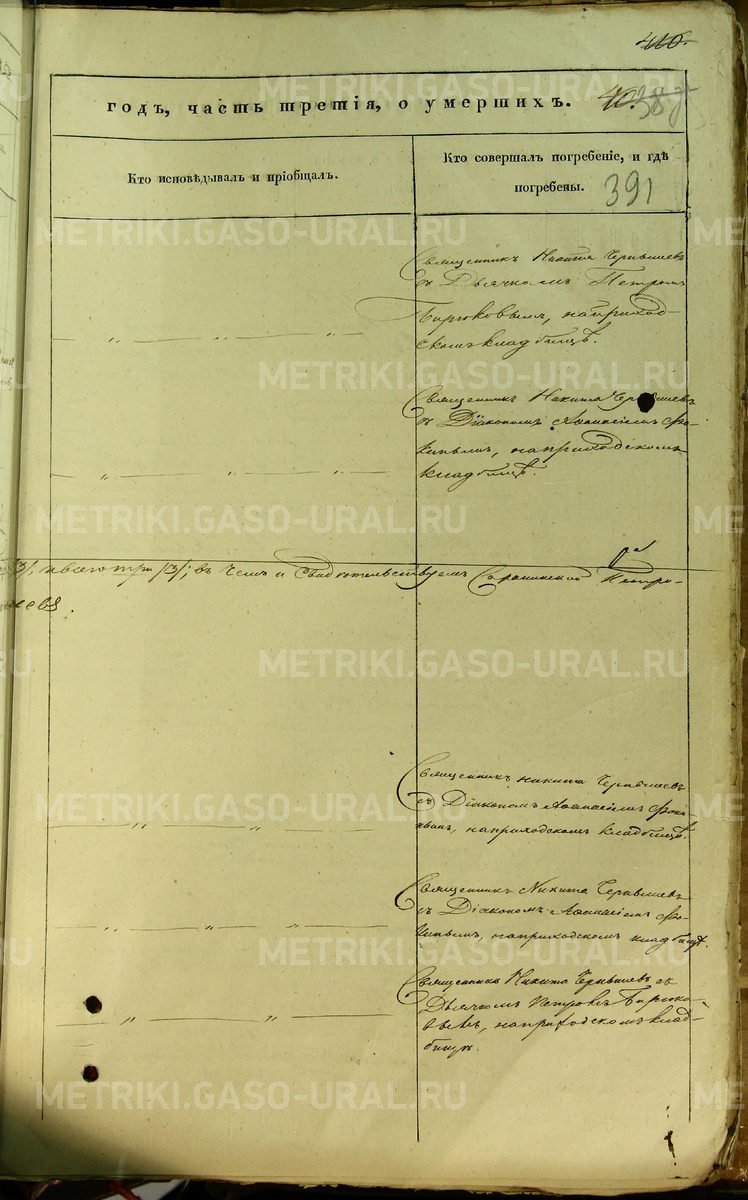 416.
годъ, часть третія, о умершихъ. 40. 387
Кто исповѣдывалъ и пріобщалъ.
Кто совершалъ погребеніе, и гдѣ
погребены. 391
Священникъ Никита Чернышевъ
съ Дьячкомъ Петромъ
Бирюковымъ, на приход-
скомъ кладбищѣ.
Священникъ Никита Чернышевъ
съ Діакономъ Аѳанасіемъ Фо-
кинымъ, на приходскомъ
кладбищѣ.
/3/, и всего три /3/; въ чемъ и свидѣтельствуемъ
Священникъ Никита Чернышевъ
съ Діакономъ Аѳанасіемъ Фоки-
нымъ, на приходскомъ кладбищѣ.
Священникъ Никита Чернышевъ
съ Діакономъ Аѳанасіемъ Фо-
кинымъ, на приходскомъ кладбищѣ.
Священникъ Никита Чернышевъ съ
Дьячкомъ Петромъ Бирюко-
вымъ, на приходскомъ клад-
бищѣ.
METRIKI.GASO-URAL.RU